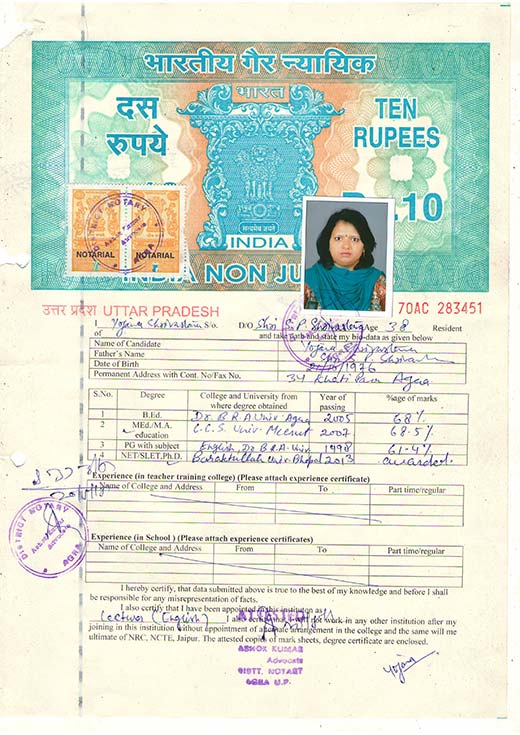 भारतीय गैर न्यायिक
भारत
दस
रुपये
TEN
RUPEES
सत्यमेव जयते
Rs.10
INDIA
INDIA NON JU
NOTARIAL NOTARIAL
DISTRICT NOTARY
AGRA
उत्तर प्रदेश UTTAR PRADESH
70AC 283451
I Yojana Shrivastava S/o. D/O Shri S. P. Shrivastava Age 38 Resident
of and take oath and state my bio-data as given below
Name of Candidate Yojana Shrivastava
Father's Name Shri S. P. Shrivastava
Date of Birth 1976
Permanent Address with Cont. No/Fax No. 34 Agra
S.No. Degree College and University from where degree obtained Year of passing %age of marks
1 B.Ed. Dr. B R A Univ. Agra 2005 68%
2 MEd./M.A. education C.C.S. Univ. Meerut 2007 68.5%
3 PG with subject English, Dr. B.R.A. Univ. 1998 61.4%
4 NET/SLET,Ph.D. Barkatullah Univ. Bhopal 2013 awarded
Experience (in teacher training college) (Please attach experience certificate)
Name of College and Address From To Part time/regular
DISTRICT NOTARY
AGRA
Experience (in School ) (Please attach experience certificates)
Name of College and Address From To Part time/regular
I hereby certify, that data submitted above is true to the best of my knowledge and before I shall
be responsible for any misrepresentation of facts.
I also certify that I have been appointed in this institution as
Lecturer (English) I also certify that, I will not work in any other institution after my
joining in this institution without appointment of alternate arrangement in the college and the same will me
ultimate of NRC, NCTE, Jaipur. The attested copies of mark sheets, degree certificate are enclosed.
ATTESTED
ASHOK KUMAR
Advocate
DISTT. NOTARY
AGRA U.P.
Yojana